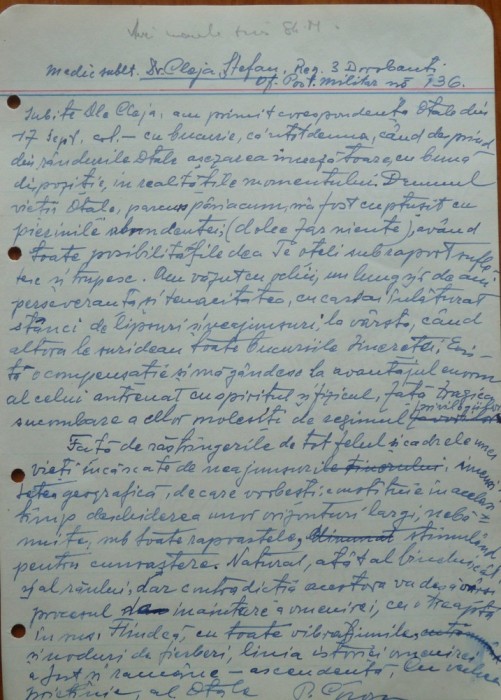 Medic sublt. Dr. Cloja Ștefan, Reg. 3 Dorobanți
Of. Post. Militar nº 136.
Iubite Dle Cloja, am primit corespondența Dtale din
17 Sept. crt. – cu bucurie, ca întotdeauna, când desprind
din rândurile Dtale așezarea în cu bună
dispoziție, în realitățile momentului. Drumul
vieții Dtale, parcurs până acum, n'a fost căptușit cu
pierinile abondenței, (dolce far niente), având
toate posibilitățile de a Te oteli sub raport sufle
tesc și trupesc. Am văzut cu ochii, un lung șir de ani
perseveranța și tenacitatea, cu care ai înlăturat
stânci de lipsuri și neajunsuri, la vârsta, când
altora le surideau toate bucuriile tinereței. Exis
tă o compensație și mă gândesc la avantajul enorm
al celui antrenat cu spiritul și fizicul, față tragica
sucombare a celor molesiți de regimul
privilegiilor
Față de răsfrângerile de tot felul și cadrele unei
vieți încărcate de neajunsurile imensi
tatea geografică, de care vorbești constituie în același
timp deschiderea unor orizonturi largi, nebă
nuite, sub toate rapoartele, stimulând
pentru cunoaștere. Natural, atât al binelui cât
și al răului, dar contradicția acestora va desăvârși
procesul înaintare a omenirei, cu o treaptă
în sus. Fiindcă, cu toate vibrațiunile,
și noduri de fierberi, linia istoriei omenirei
a fost și rămâne – ascendentă. Cu veche
prietenie, al Dtale